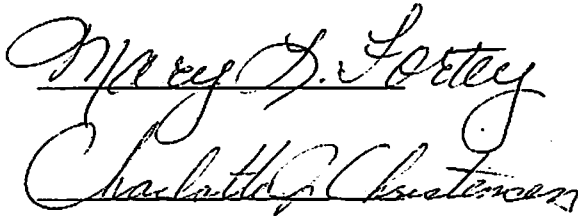 Mary D. Fortey
Charlotte J. Christensen